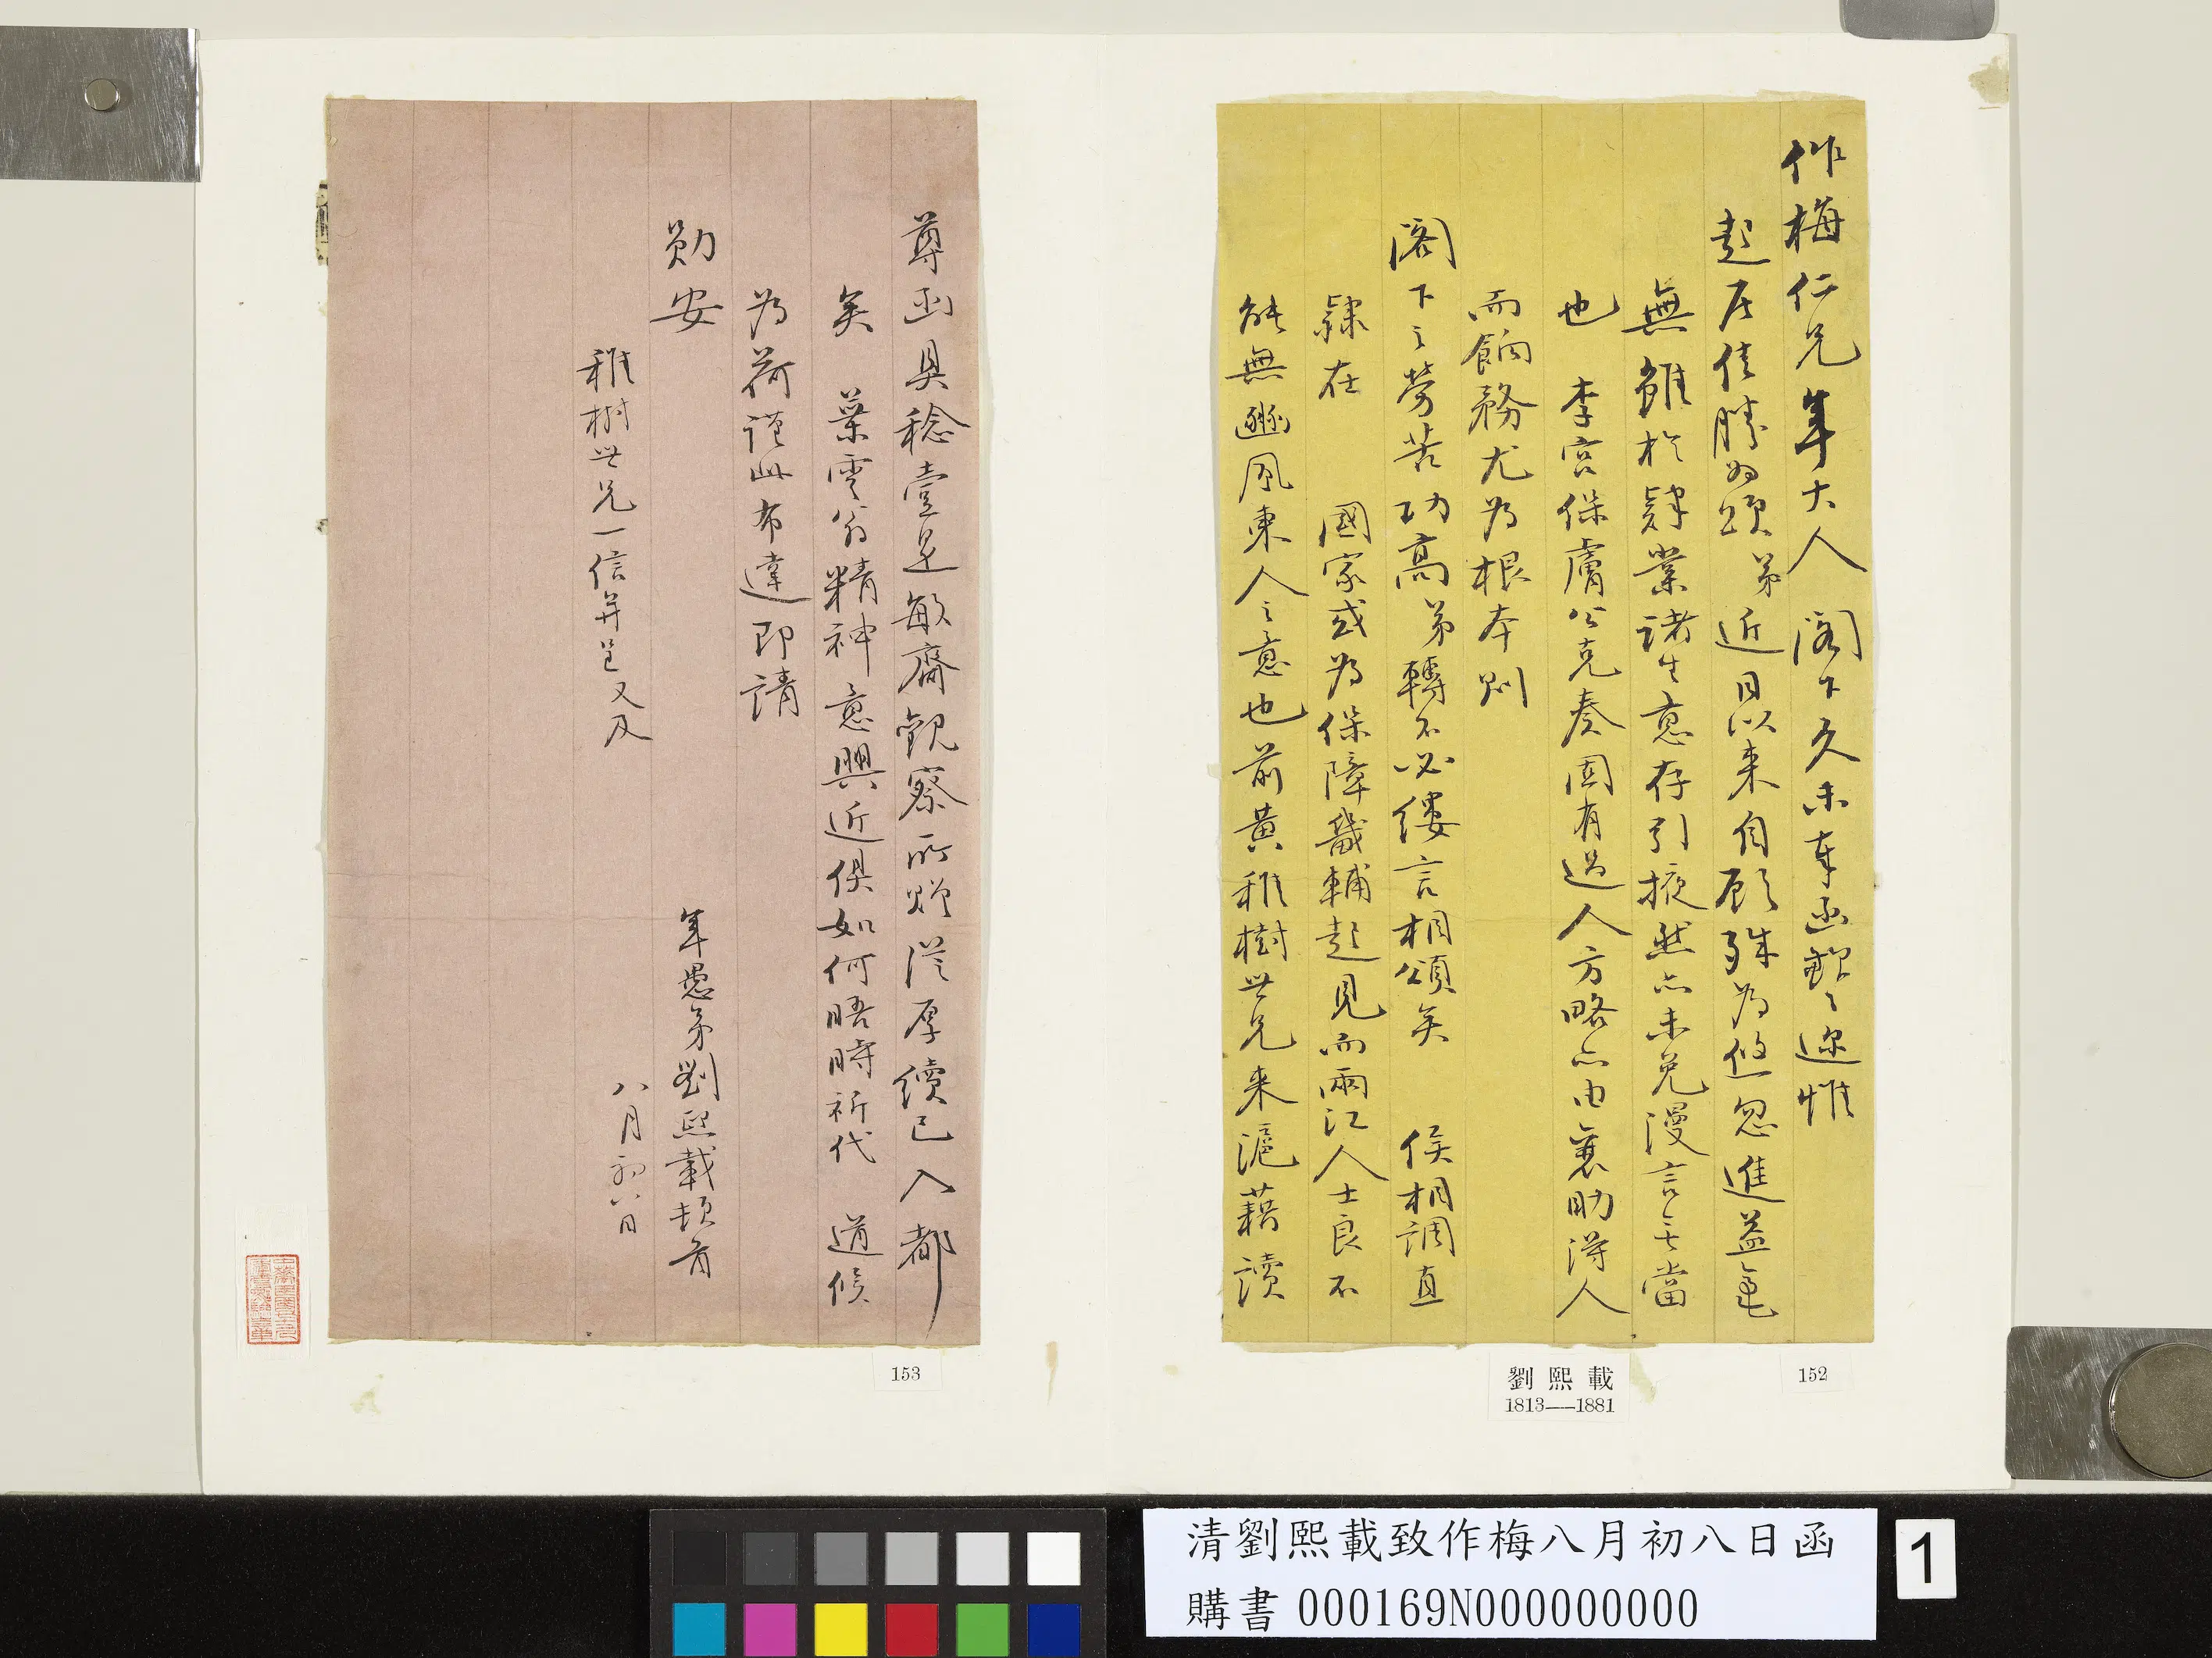 作梅仁兄年大人閣下久未奉函歉歉遙惟
起居佳勝為頌弟近日以來自顧殊為悠忽進益毫
無雖於肄業諸生意存引掖然亦未免漫言無當
也 李宮保膚公克奏固有過人方略亦由襄助得人
而餉務尤為根本則
閣下之勞苦功高弟轉不必縷言相頌矣 侯相調直
隸在 國家或為保障畿輔起見而兩江人士良不
能無豳風東人之意也前黃稚樹世兄來滬藉讀
尊函具稔壹是敏齋觀察所贈從厚續已入都
矣 葉雲翁精神意興近俱如何晤時祈代 道候
為荷謹此布達即請
勛安
年愚弟劉熙載頓首
八月初八日
稚樹世兄一信并呈又及
劉熙載
1813—1881
152
153
清劉熙載致作梅八月初八日函
購書 000169N000000000
1